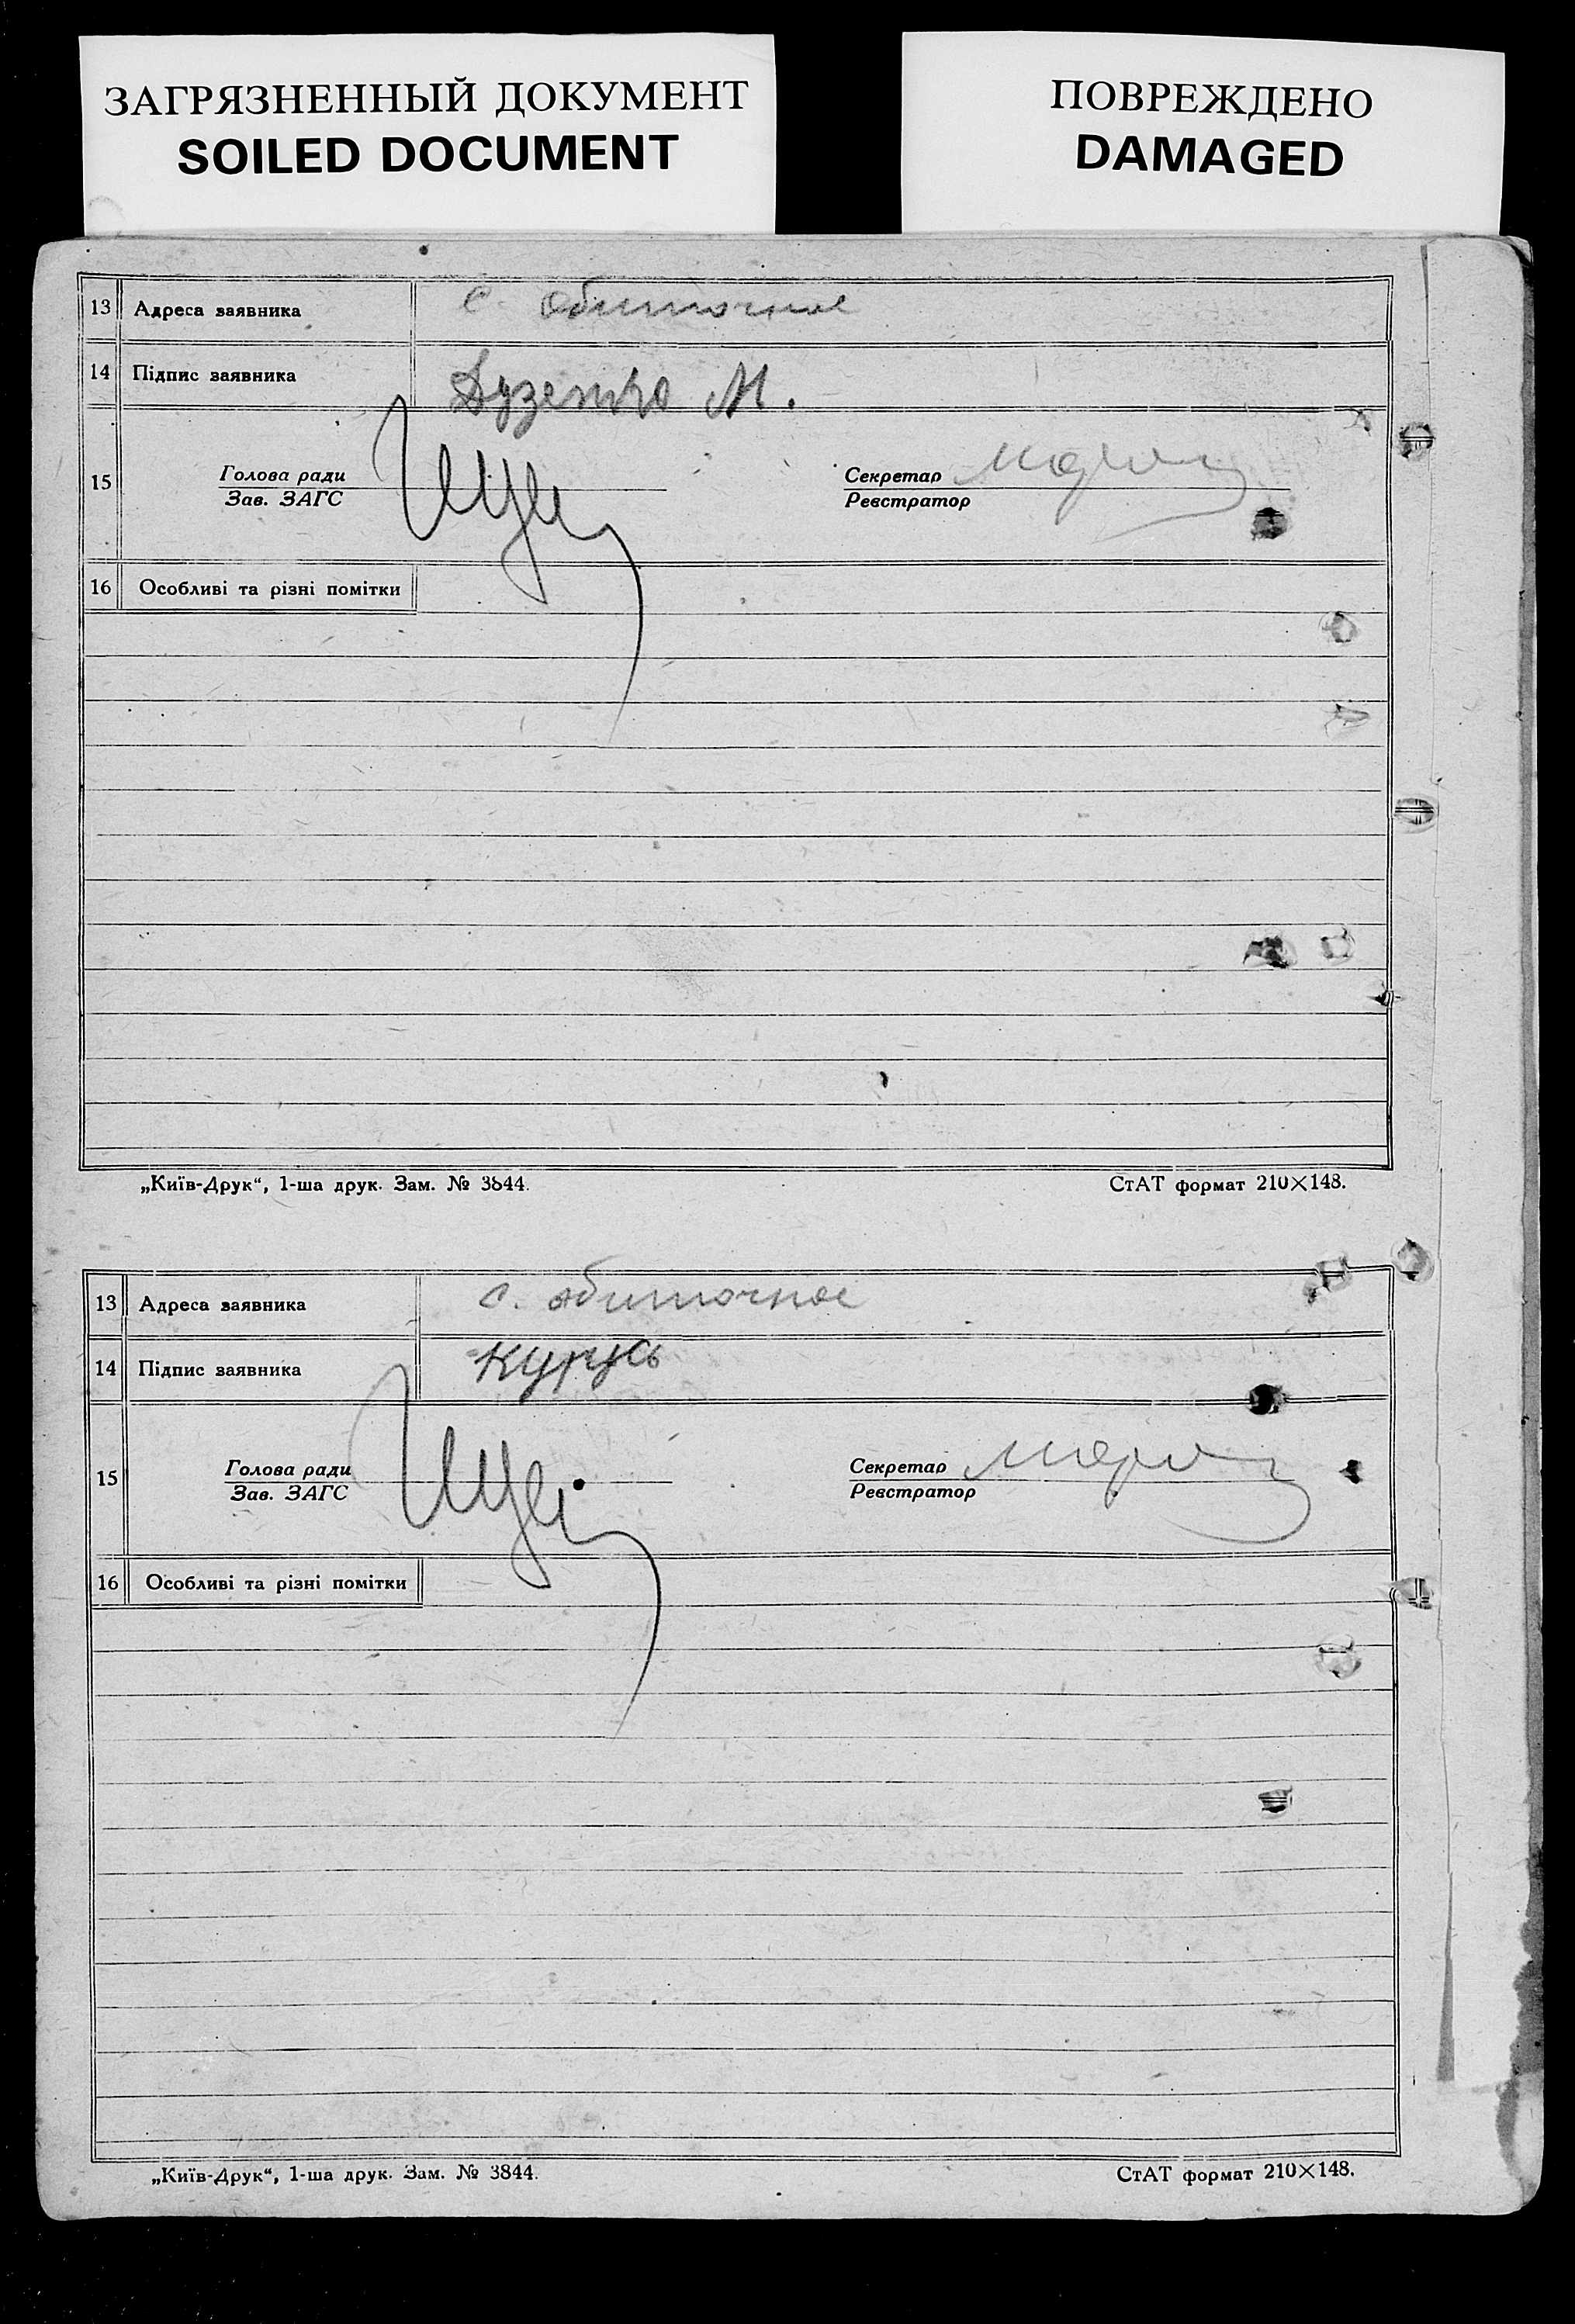 ЗАГРЯЗНЕННЫЙ ДОКУМЕНТ
SOILED DOCUMENT
ПОВРЕЖДЕНО
DAMAGED
13 Адреса заявника с. Обиточное
14 Підпис заявника М.
15 Голова ради
Зав. ЗАГС
Секретар
Реєстратор
16 Особливі та різні помітки
„Київ-Друк“, 1-ша друк. Зам. № 3844.
СтАТ формат 210×148.
13 Адреса заявника с. обиточное
14 Підпис заявника
15 Голова ради
Зав. ЗАГС
Секретар
Реєстратор
16 Особливі та різні помітки
„Київ-Друк“, 1-ша друк. Зам. № 3844.
СтАТ формат 210×148.